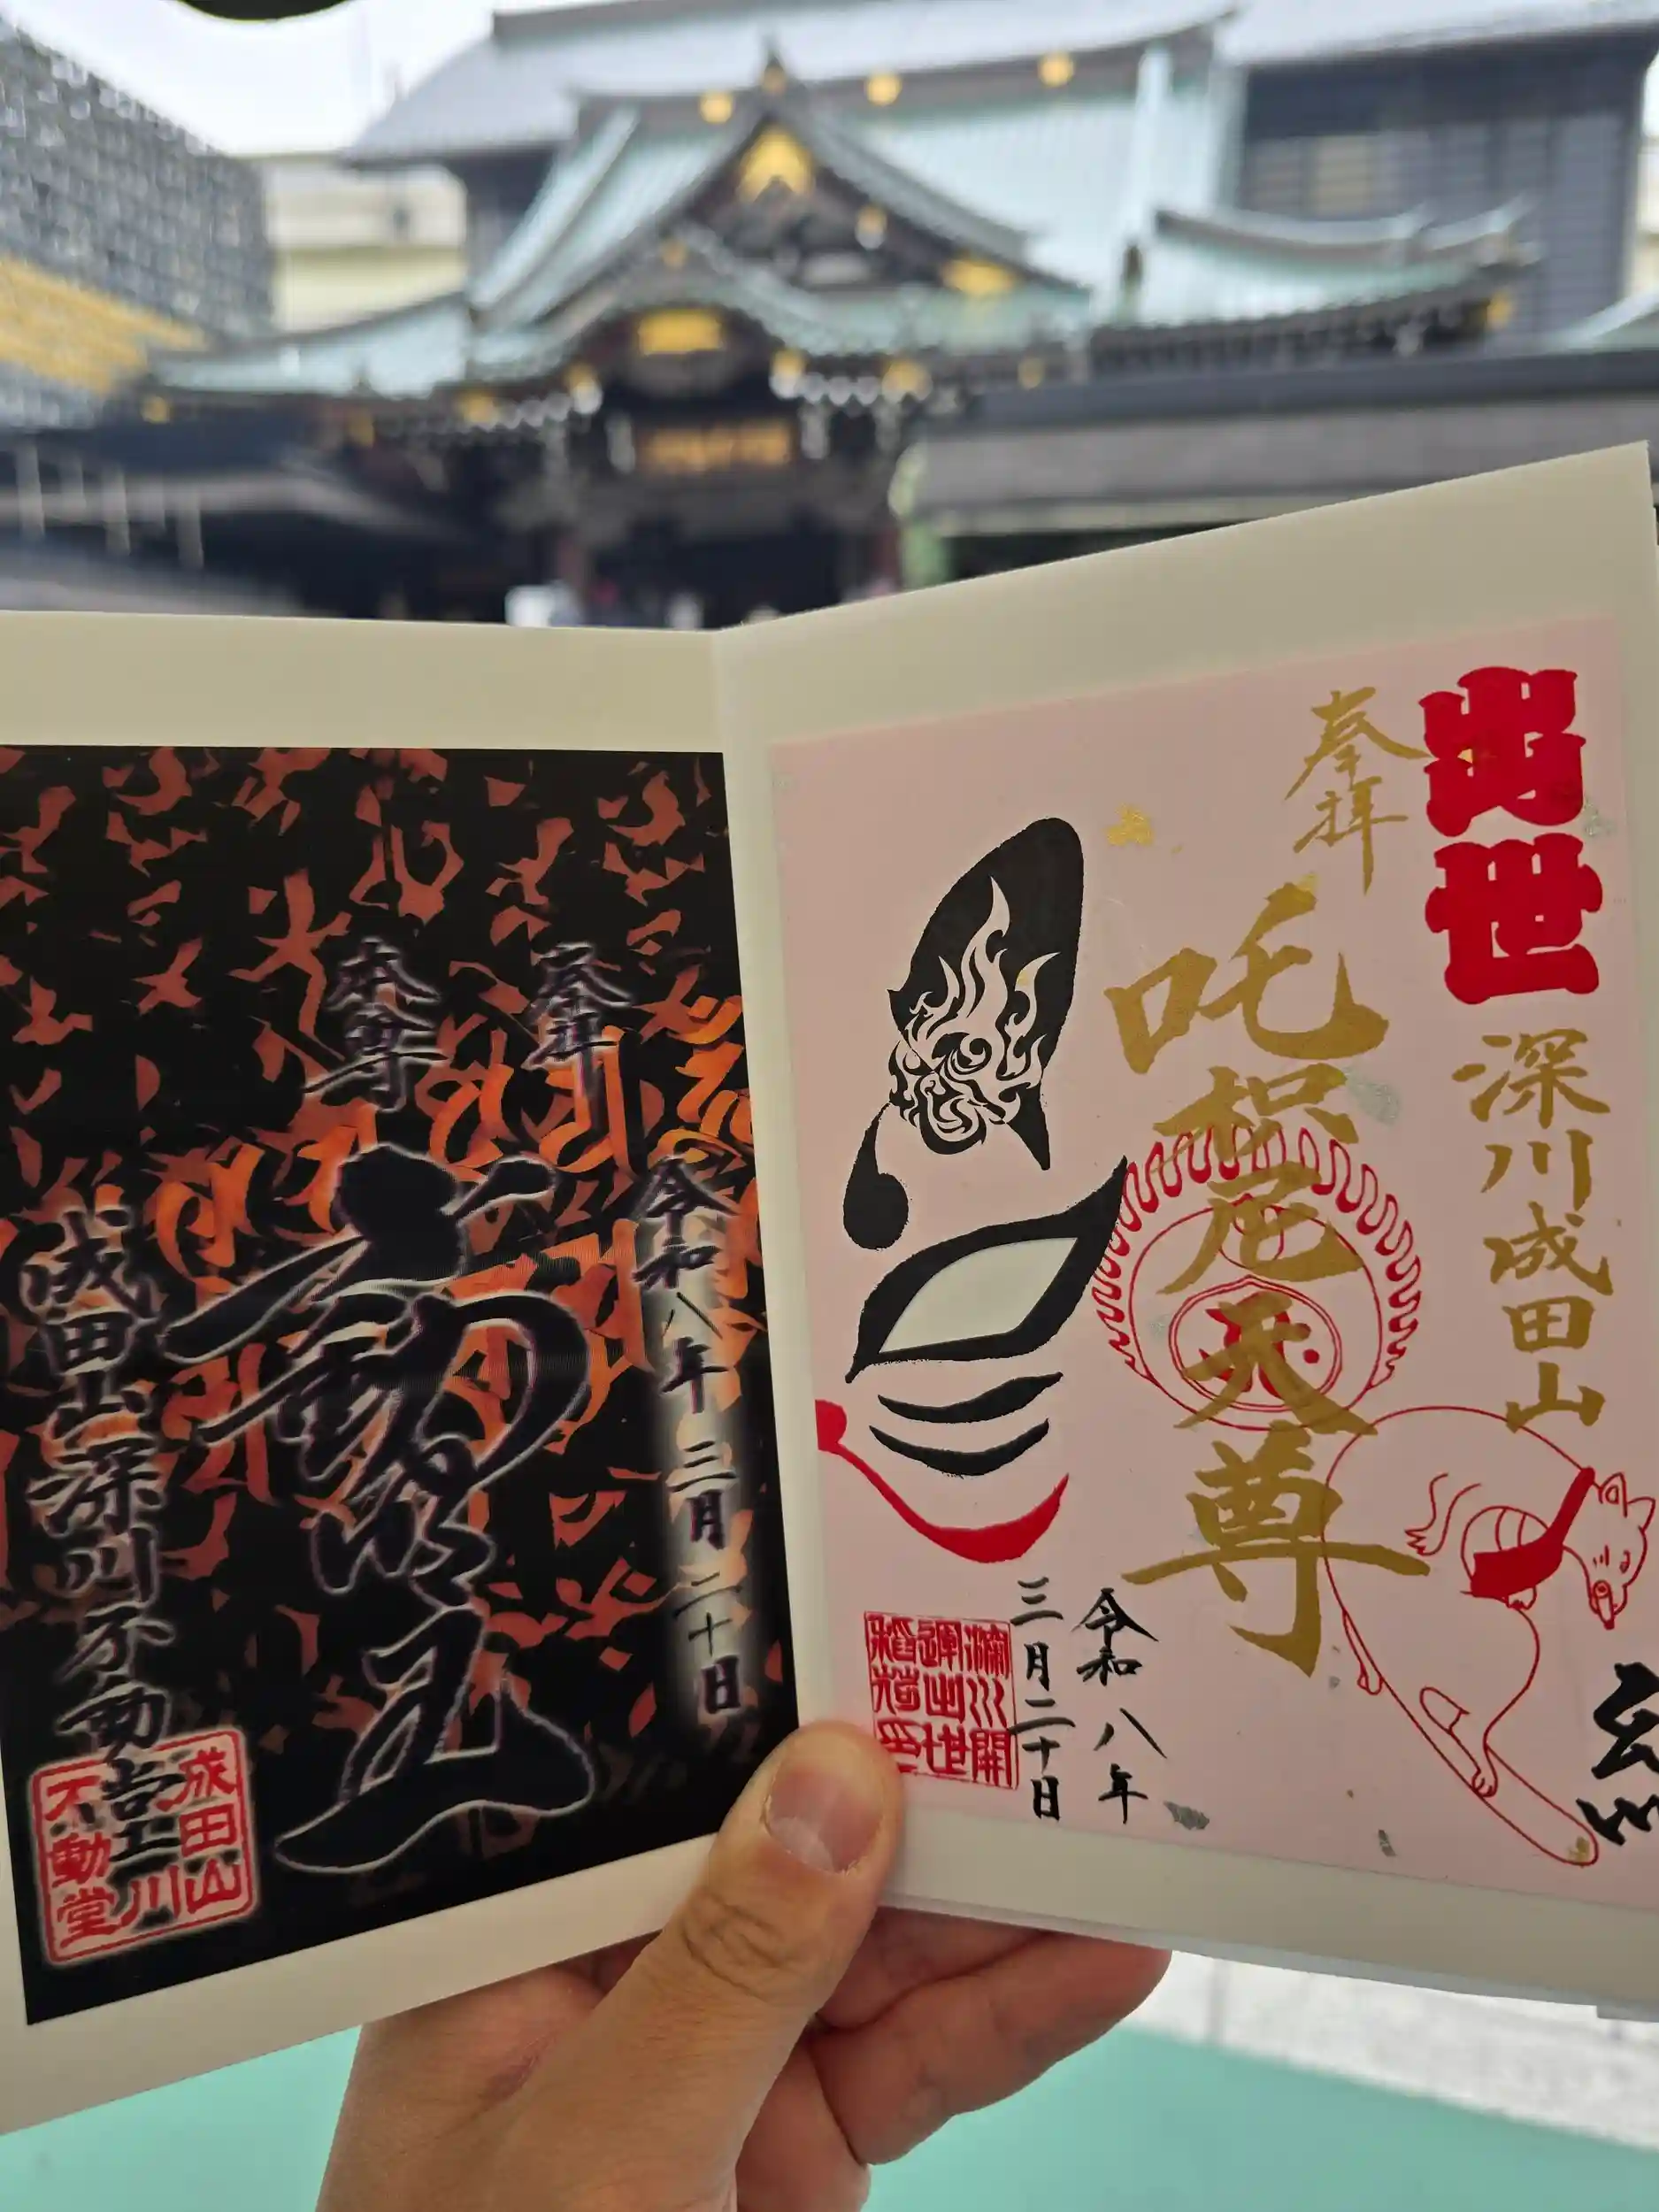 出世
奉拝
深川成田山
吒枳尼天尊
令和八年
三月二十日
深川開
運出世
稲荷印
奉拝
令和八年三月二十日
本尊
不動明王
成田山深川不動堂
成田山
深川
不動堂